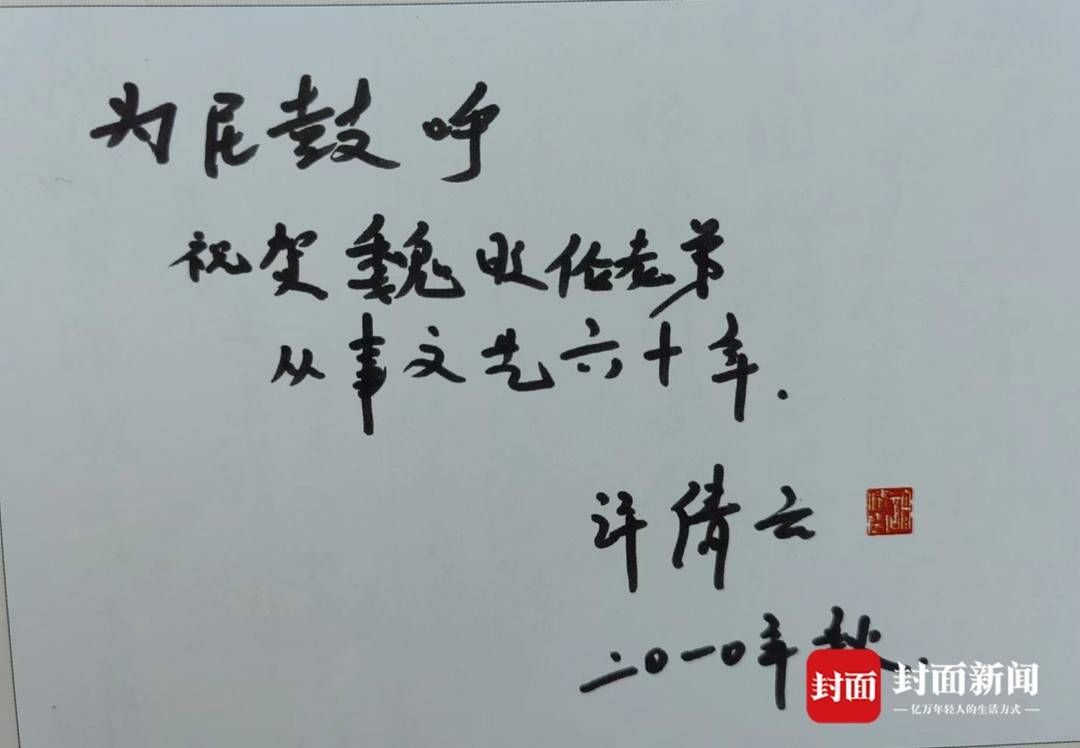 为民鼓呼
祝贺魏明伦老弟
从事文艺六十年.
许倩云
二〇一〇年秋.
封面 封面新闻
亿万年轻人的生活方式